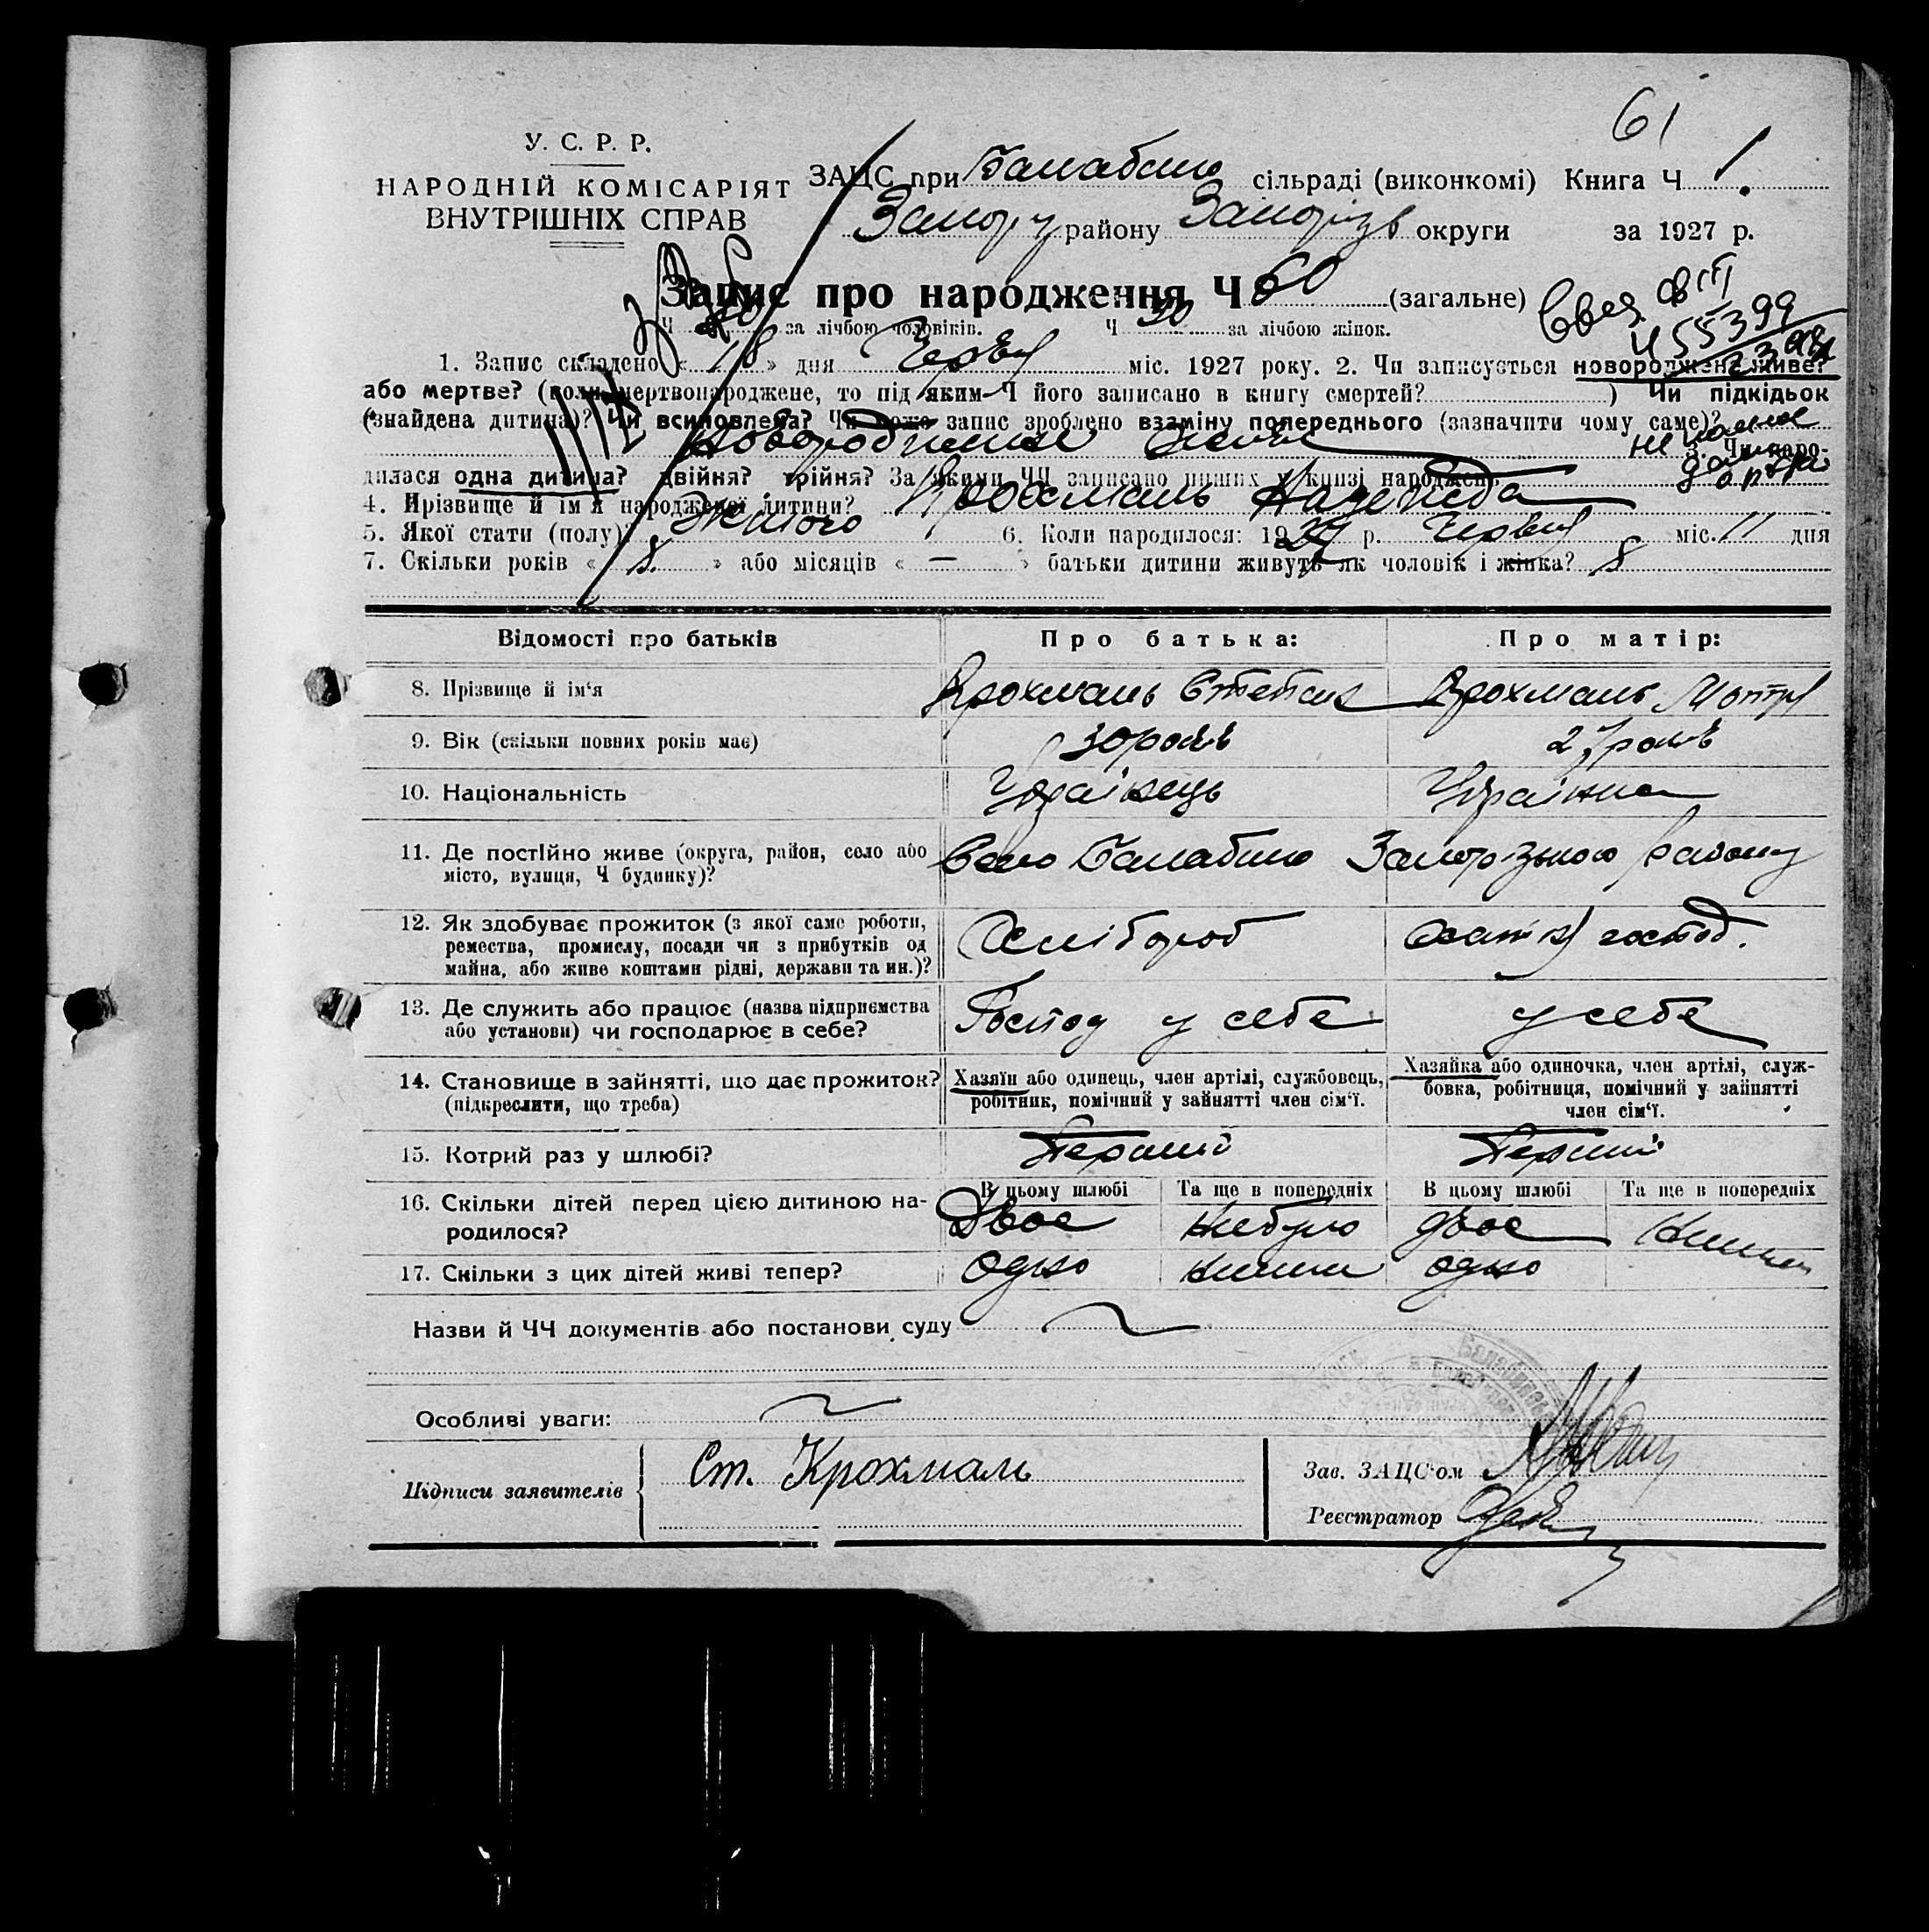 61
У. С. Р. Р.
НАРОДНІЙ КОМІСАРІЯТ
ВНУТРІШНІХ СПРАВ
ЗАЦС при Балабино сільраді (виконкомі) Книга Ч 1.
Запор району Запорізь округи за 1927 р.
Запис про народження Ч 60 (загальне)
Ч за лічбою чоловіків. Ч 30 за лічбою жінок.
55399
1. Запис складено « 18 » дня Червня міс. 1927 року. 2. Чи записується новороджене живе?
або мертве? (коли мертвонароджене, то під яким Ч його записано в книгу смертей? ) Чи підкідьок
(знайдена дитина)? Чи всиновлена? Чи може запис зроблено взаміну попереднього (зазначити чому саме)?
3. Чи наро-
дилася одна дитина? двійня? трійня? За якими ЧЧ записано инших у книзі народжень
4. Прізвище й ім'я народженої дитини? Крохмаль Надежда
5. Якої стати (полу)? Жіночого 6. Коли народилося: 1927 р. Червня міс. 11 дня
7. Скільки років « 8. » або місяців « — » батьки дитини живуть як чоловік і жінка? 8
Відомості про батьків Про батька: Про матір:
8. Прізвище й ім'я Крохмаль Степан Крохмаль Мотря
9. Вік (скільки повних років має) 30 років 27 років
10. Національність Українець Українка
11. Де постійно живе (округа, район, село або Село Балабино Запорізького району
місто, вулиця, Ч будинку)?
12. Як здобуває прожиток (з якої саме роботи, Хлібороб Хатня господ.
ремества, промислу, посади чи з прибутків од
майна, або живе коштами рідні, держави та ин.)?
13. Де служить або працює (назва підприємства Господ у себе у себе
або установи) чи господарює в себе?
14. Становище в зайнятті, що дає прожиток? Хазяїн або одинець, член артілі, службовець, Хазяйка або одиночка, член артілі, служ-
(підкреслити, що треба) робітник, помічний у зайнятті член сім'ї. бовка, робітниця, помічний у зайнятті
член сім'ї.
15. Котрий раз у шлюбі? Перший Перший
16. Скільки дітей перед цією дитиною на- В цьому шлюбі Та ще в попередніх В цьому шлюбі Та ще в попередніх
родилося? Двое небуло двое
17. Скільки з цих дітей живі тепер? Одно одно
Назви й ЧЧ документів або постанови суду
Особливі уваги:
Підписи заявителів Ст. Крохмаль
Зав. ЗАЦС'ом
Реєстратор